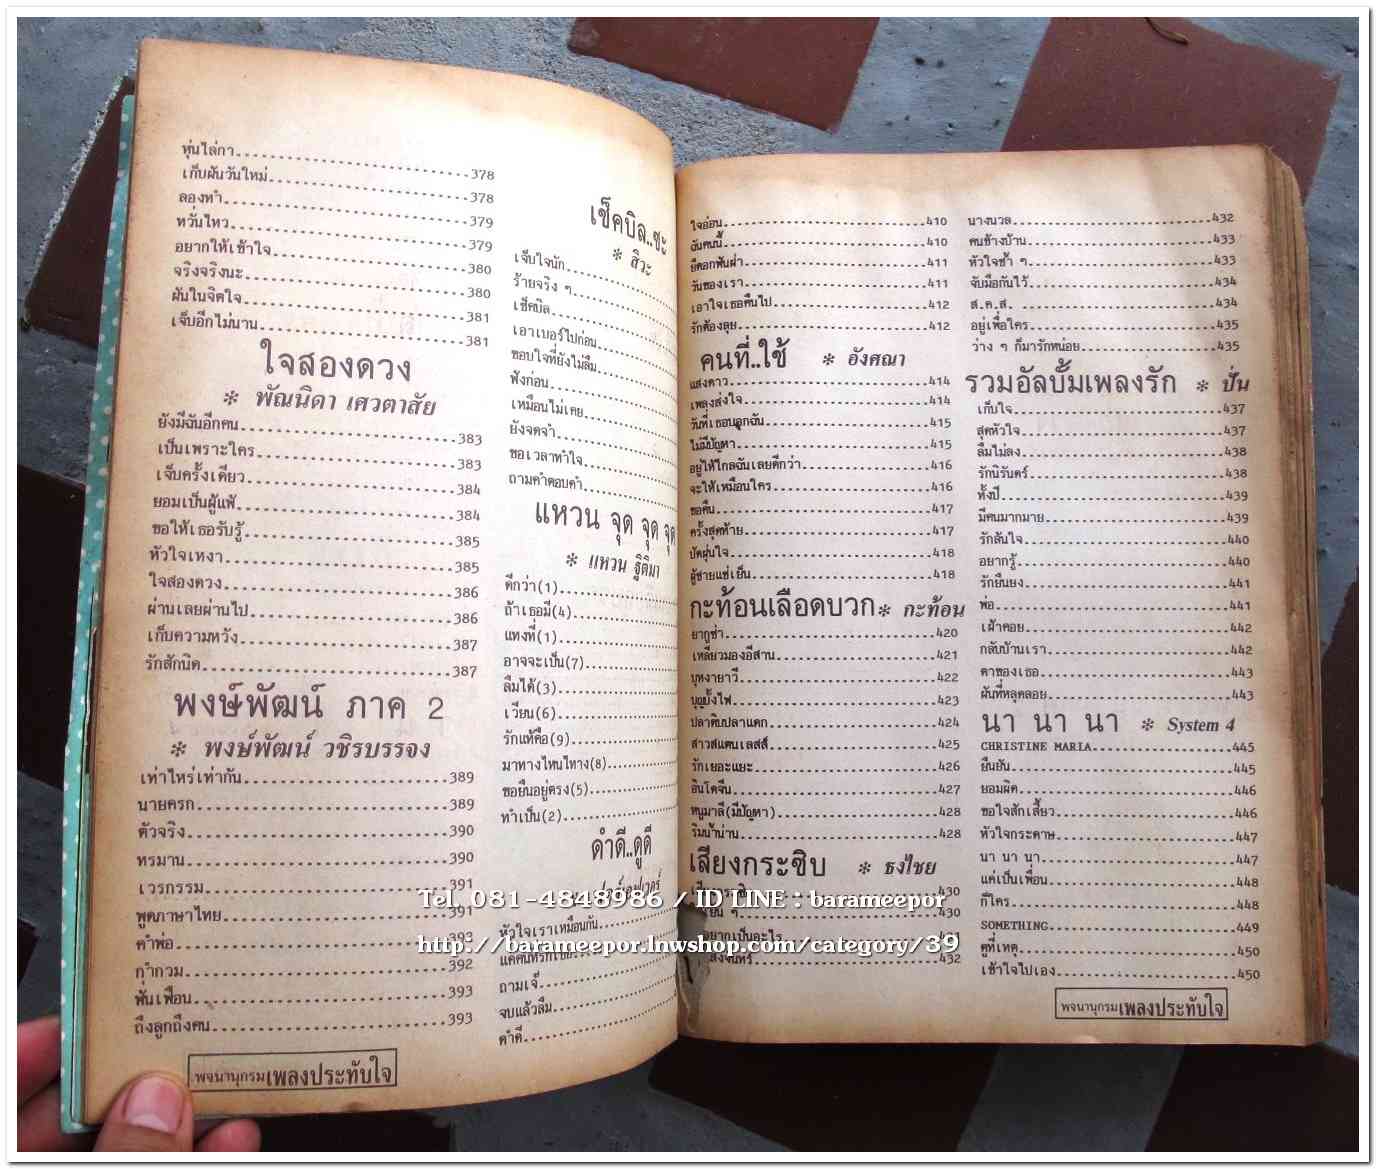 หุ่นไล่กา...378
เก็บฝันวันใหม่...378
ลองทำ...379
หวั่นไหว...379
อยากให้เข้าใจ...380
จริงจริงนะ...380
ฝันในจิตใจ...381
เจ็บอีกไม่นาน...381
ใจสองดวง
* พัณนิดา เศวตาสัย
ยังมีฉันอีกคน...383
เป็นเพราะใคร...383
เจ็บครั้งเดียว...384
ยอมเป็นผู้แพ้...384
ขอให้เธอรับรู้...385
หัวใจเหงา...385
ใจสองดวง...386
ผ่านเลยผ่านไป...386
เก็บความหวัง...387
รักสักนิด...387
พงษ์พัฒน์ ภาค 2
* พงษ์พัฒน์ วชิรบรรจง
เท่าไหร่เท่ากัน...389
นายครก...389
ตัวจริง...390
ทรมาน...390
เวรกรรม...391
พูดภาษาไทย...391
คำพ่อ...393
กำกวม...392
ฟั่นเฟือน...393
ถึงลูกถึงคน...393
พจนานุกรมเพลงประทับใจ
เช็คบิล..ซะ
* สิวะ
เจ็บใจนัก
ร้ายจริง ๆ
เช็คบิล
เอาเบอร์ไปก่อน
ขอบใจที่ยังไม่ลืม
ฟังก่อน
เหมือนไม่เคย
ยังจดจำ
ขอเวลาทำใจ
ถามคำตอบคำ
แหวน จุด จุด จุด
* แหวน ฐิติมา
ดีกว่า(1)
ถ้าเธอมี(4)
แทงที่(1)
อาจจะเป็น(7)
ลืมได้(3)
เวียน(6)
รักแท้คือ(9)
มาทางไหนไทาง(8)
ขอยืนอยู่ตรง(5)
ทำเป็น(2)
ดำดี..ดูดี
หัวใจเราเหมือนกัน
ถามเจ๊
จบแล้วลืม
ดำดี
ใจอ่อน...410
ฉันคนนี้...410
ยืดอกพันผ่า...411
วันของเรา...411
เอาใจเธอคืนไป...412
รักต้องลุย...412
คนที่..ใช้ * อังศณา
แสงดาว...414
เพลงส่งใจ...414
วันที่เธอบอกฉัน...415
ไม่มีปัญหา...415
อยู่ให้ไกลฉันเลยดีกว่า...416
จะให้เหมือนใคร...416
ขอคืน...417
ครั้งสุดท้าย...417
บัดฝุ่นใจ...418
ผู้ชายแช่เย็น...418
กะท้อนเลือดบวก * กะท้อน
ยากูซ่า...420
เหลียวมองอีสาน...421
บุหงายาวี...422
บุญบั้งไฟ...423
ปลาดิบปลาแดก...424
สาวสแตนเลสส์...425
รักเยอะแยะ...426
อินโดจีน...427
หนูมาลี(มีปัญหา)...428
ริมน้ำน่าน...428
เสียงกระซิบ * ธงไชย
เสียงกระซิบ...430
430
อยากเป็นอะไร...431
แสงจันทร์...432
นางนวล...432
คนข้างบ้าน...433
หัวใจช้ำ ๆ...433
จับมือกันไว้...434
ส.ค.ส....434
อยู่เพื่อใคร...435
ว่าง ๆ ก็มารักหน่อย...435
รวมอัลบั้มเพลงรัก * ปั่น
เก็บใจ...437
สุดหัวใจ...437
ลืมไม่ลง...438
รักนิรันดร์...438
ทั้งปี...439
มีคนมากมาย...439
รักล้นใจ...440
อยากรู้...440
รักยืนยง...441
พ่อ...441
เฝ้าคอย...442
กลับบ้านเรา...442
ตาของเธอ...443
ฝันที่หลุดลอย...443
นา นา นา * System 4
CHRISTINE MARIA...445
ยืนยัน...445
ยอมผิด...446
ขอใจสักเสี้ยว...446
หัวใจกระดาษ...447
นา นา นา...447
แค่เป็นเพื่อน...448
กี่ใคร...448
SOMETHING...449
ดูที่เหตุ...450
เข้าใจไปเอง...450
พจนานุกรมเพลงประทับใจ
Tel. 081-4848986 / ID LINE : barameepor
http://barameepor.lnwshop.com/category/39